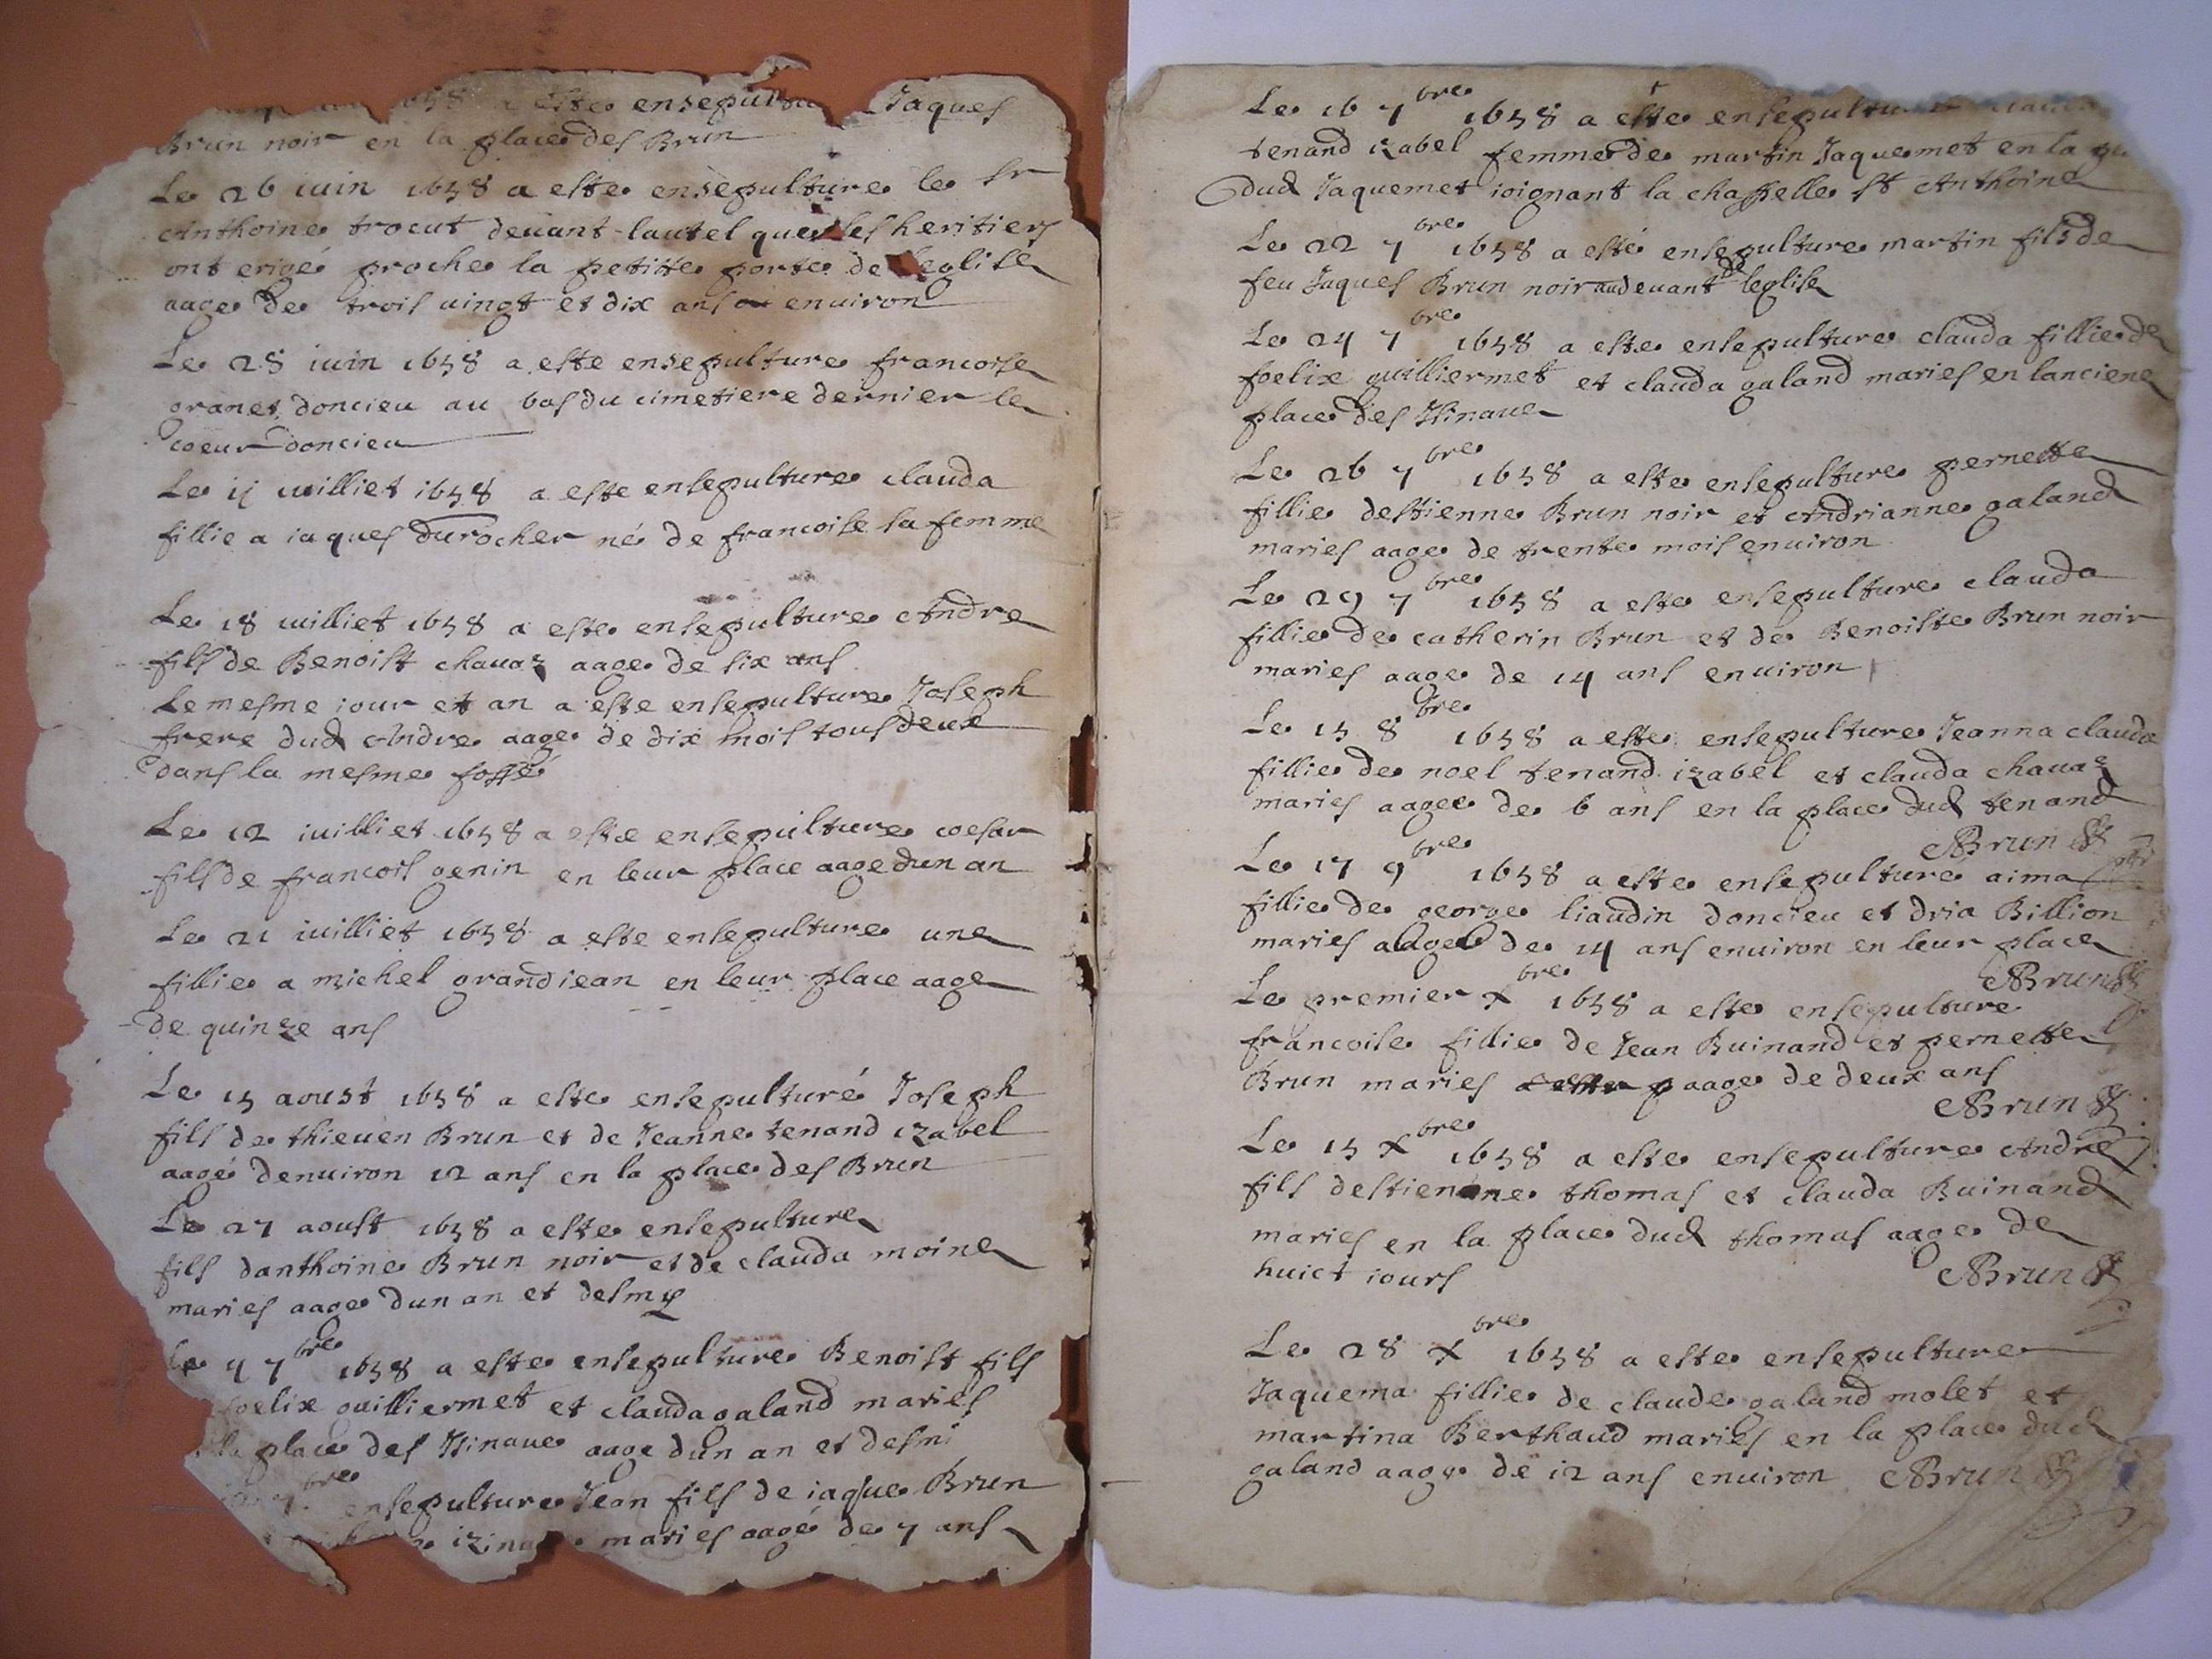 1658 a este ensepultu Jaques
Brun noir en la place des Brun
Le 26 iuin 1658 a este ensepulture le sr
Anthoine trocut deuant lautel que ses heritiers
ont erigé proche la petitte porte de leglise
aage de trois uingt et dix ans enuiron
Le 28 iuin 1658 a este ensepulture francoise
granet doncieu au bas du cimetiere dernier le
coeur doncieu
Le ij iuilliet 1658 a este ensepulture clauda
fillie a iaques durocher né de francoise sa femme
Le 18 iuilliet 1658 a este ensepulture Andre
fils de Benoist chauaz aage de six ans
Le mesme iour et an a este ensepulture Joseph
frere dud Andre aage de dix mois tous deux
dans la mesme fosse
Le 12 iuilliet 1658 a este ensepulture coesar
fils de francois genin en leur place aage dun an
Le 21 iuilliet 1658 a este ensepulture une
fillie a michel grandiean en leur place aage
de quinze ans
Le 15 aoust 1658 a este ensepulturé Joseph
fils de thieuen Brun et de Jeanne tenand izabel
aagé denuiron 12 ans en la place des Brun
Le 27 aoust 1658 a este ensepulture
fils danthoine Brun noir et de clauda moine
maries aage dun an et desmy
Le 4 7bre 1658 a este ensepulture Benoist fils
foelix guilliermet et clauda galand maries
la place des Isinaue aage dun an et desmi
bre ensepulture Jean fils de iaque Brun
maries aagé de 7 ans
Le 16 7bre 1658 a este ensepultu
tenand izabel femme de martin Jaquemet en la
dud Jaquemet ioignant la chappelle st Anthoine
Le 22 7bre 1658 a esté ensepulture martin fils de
feu Jaques Brun noir audeuant de leglise
Le 24 7bre 1658 a este ensepulture clauda fillie de
foelix guilliermet et clauda galand maries en lanciene
place des Isinaue
Le 26 7bre 1658 a este ensepulture pernette
fillie destienne Brun noir et Andrianne galand
maries aage de trente mois enuiron
Le 29 7bre 1658 a este ensepulture clauda
fillie de catherin Brun et de Benoiste Brun noir
maries aage de 14 ans enuiron
Le 15 8bre 1658 a este ensepulture Jeanna clauda
fillie de noel tenand izabel et clauda chauaz
maries aagee de 6 ans en la place dud tenand
Brun
Le 17 9bre 1658 a este ensepulture aima
fillie de george liaudin doncieu et dria Billion
maries aagee de 14 ans enuiron en leur place
Brun
Le premier Xbre 1658 a este ensepulture
francoise fillie de Jean Buinand et pernette
Brun maries aage de deux ans
Brun
Le 15 Xbre 1658 a este ensepulture Andre
fils destienne thomas et clauda Buinand
maries en la place dud thomas aage de
huict iours Brun
Le 28 Xbre 1658 a este ensepulture
Jaquema fillie de claude galand molet et
martina Berthaud maries en la place dud
galand aage de 12 ans enuiron Brun